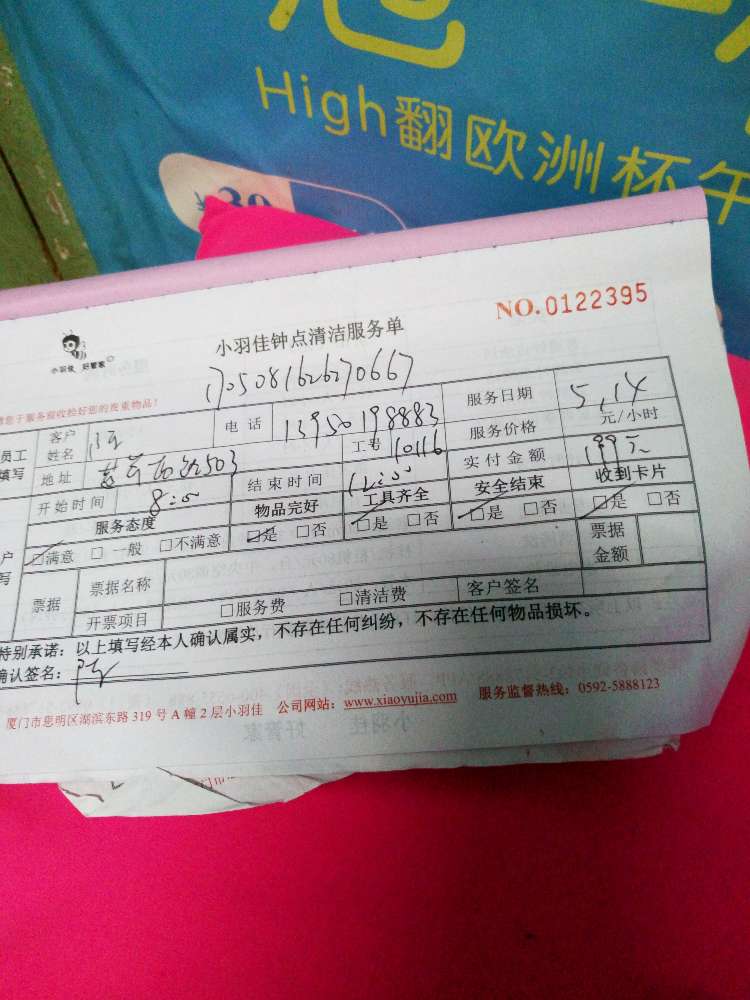 High翻欧洲杯午
¥39
NO.0122395
小羽佳 好管家
小羽佳钟点清洁服务单
170508162627066７
员工
填写
客户
姓名
电话 13950198883 服务日期 5,14
地址 503 工号 10116 服务价格 元/小时
开始时间 8:00 结束时间 12:00 实付金额 199元
服务态度 物品完好 工具齐全 安全结束 收到卡片
□满意 □一般 □不满意 □是 □否 □是 □否 □是 □否 □是 □否
票据 票据名称 票据
金额
开票项目 □服务费 □清洁费 客户签名
特别承诺：以上填写经本人确认属实，不存在任何纠纷，不存在任何物品损坏。
确认签名：
厦门市思明区湖滨东路319号A幢2层小羽佳 公司网站：www.xiaoyujia.com 服务监督热线：0592-5888123